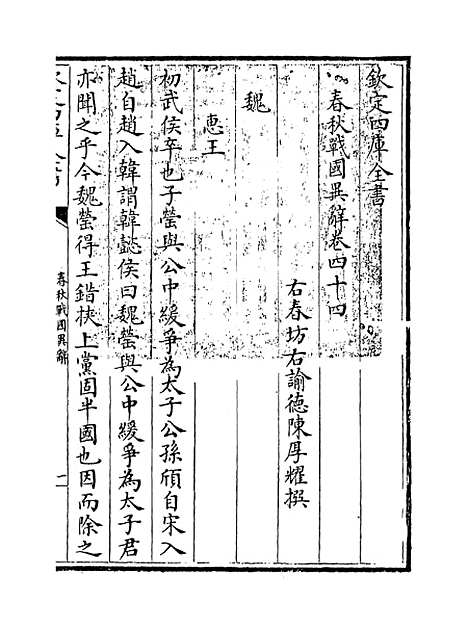 欽定四庫全書
春秋戰國異辭卷四十四
右春坊右諭德陳厚耀撰
魏
惠王
初武侯卒也子罃與公中緩爭為太子公孫頎自宋入
趙自趙入韓謂韓懿侯曰魏罃與公中緩爭為太子君
亦聞之乎今魏罃得王錯挾上黨固半國也因而除之
春秋戰國異辭